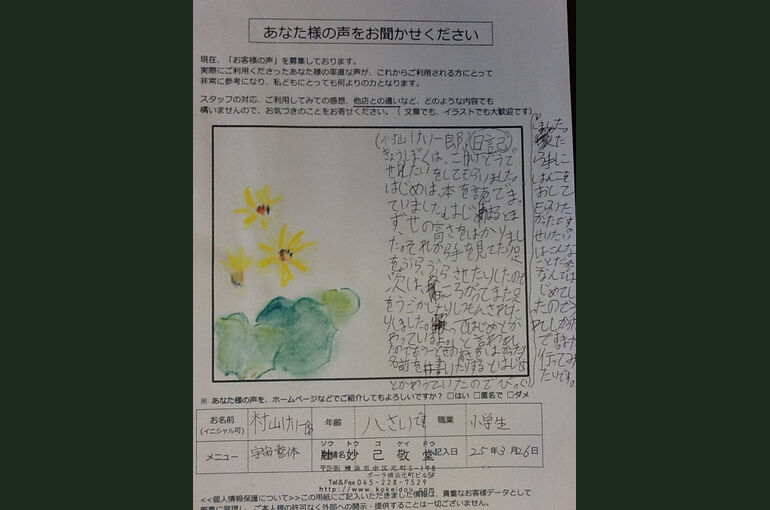 あなた様の声をお聞かせください
現在、「お客様の声」を募集しております。
実際にご利用くださったあなた様の率直な声が、これからご利用される方にとって
非常に参考になり、私どもにとっても何よりの力となります。
スタッフの対応、ご利用してみての感想、他店との違いなど、どのような内容でも
構いませんので、お気づきのことをお寄せください。（文章でも、イラストでも大歓迎です）
日記
きょうぼくは、こかげどうで
せいたいをしてもらいました。
はじめは、本を読んでま
っていました。はじまると
まず、せの高さをはかりまし
た。それから手を見てたり足
をぶらぶらさせたりしたので
次は、ころがってまた足
をうごかしたりしつもんされた
りしました。
わっているよ。と言われまし
たのでもう一どせの高さをはかったり
名前を書いたりするとはじめ
とかわっていたのでびっくり
しました。
また
手に
はんこを
おして
もらった
ことだった
なんては
じめてし
たのでう
れしかった
ですまた
行ってみ
たいです。
※ あなた様の声を、ホームページなどでご紹介してもよろしいですか？ □はい □匿名で □ダメ
お名前 村山けん一郎 年齢 八さいです 職業 小学生
(イニシャル可)
メニュー 宇宙整体 店舗名 妙己敬堂 記入日 25年3月26日
ソウ トウ コ ケイ ドウ
横浜市中区元町5-198
ポーラ横浜元町ビル5F
Tel&Fax 045-228-7529
http://www.kokeidou.com
<<個人情報保護について>>この用紙にご記入いただきました情報は、貴重なお客様データとして
厳重に管理し、ご本人様の許可なく外部への開示・提供することは一切ございません。